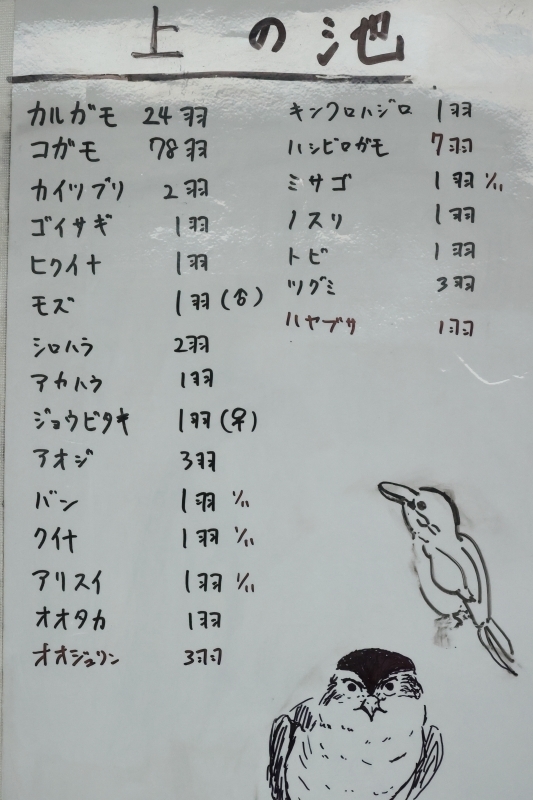 上の池
カルガモ 24羽
コガモ 78羽
カイツブリ 2羽
ゴイサギ 1羽
ヒクイナ 1羽
モズ 1羽(♂)
シロハラ 2羽
アカハラ 1羽
ジョウビタキ 1羽(♀)
アオジ 3羽
バン 1羽 1/11
クイナ 1羽 1/11
アリスイ 1羽 1/11
オオタカ 1羽
オオジュリン 3羽
キンクロハジロ 1羽
ハシビロガモ 7羽
ミサゴ 1羽 1/11
ノスリ 1羽
トビ 1羽
ツグミ 3羽
ハヤブサ 1羽